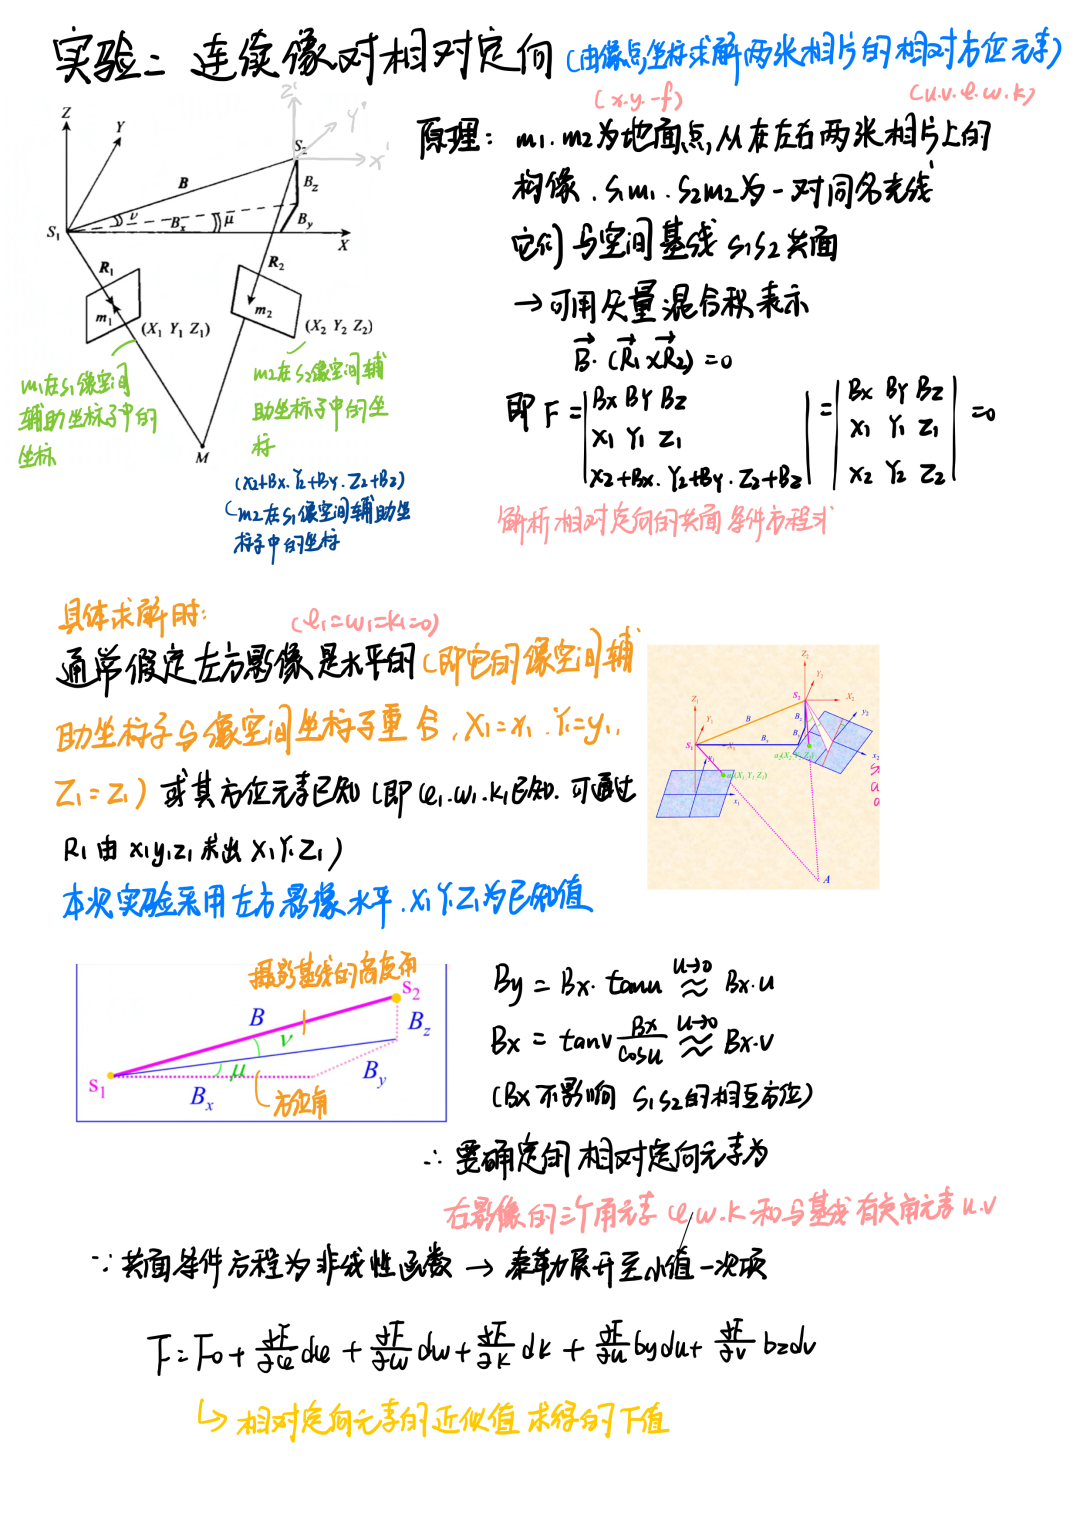 实验二 连续像对相对定向 (由像点坐标求解两张相片的相对方位元素)
(x.y.-f)
(u.v.φ.w.k)
Z
Y
Z'
Y'
X'
S₂
B
B_z
ν
B_x
μ̄
B_y
S₁
X
R₁
R₂
m₁
(X₁ Y₁ Z₁)
m₂
(X₂ Y₂ Z₂)
M
m1在S1像空间
辅助坐标系中的
坐标
m2在S2像空间辅
助坐标系中的坐
标
(X2+Bx. Y2+By. Z2+Bz)
(m2在S1像空间辅助坐
标系中的坐标
原理: m1.m2为地面点,从在左右两张相片上的
构像. S1m1. S2m2为一对同名光线
它们与空间基线 S1S2共面
→可用矢量混合积表示
B·(R1×R2)=0
即 F = |Bx By Bz| = |Bx By Bz| =0
X1 Y1 Z1 X1 Y1 Z1
X2+Bx. Y2+By. Z2+Bz X2 Y2 Z2
解析相对定向的共面条件方程式
具体求解时:
(φ1=w1=k1=0)
通常假定左方影像是水平的(即它的像空间辅
助坐标系与像空间坐标系重合, X1=x1. Y1=y1,
Z1=z1) 或其方位元素已知(即φ1.w1.k1已知. 可通过
R1由x1y1z1求出X1Y1Z1)
本次实验采用左方影像水平.X1Y1Z1为已知值
Z₂
Y₂
S₂
X₂
Z₁
Y₁
B
S₁
X₁
y₂
x₂
x₁
A
摄影基线的高度角
S₂
B
B_z
ν
μ
S₁
B_y
B_x
方位角
By = Bx. tanu ≈ (u→0) Bx.u
Bx = tanv Bx/cosu ≈ (u→0) Bx.v
(Bx不影响 S1S2的相互方位)
∴ 要确定的相对定向元素为
右影像的三个角元素φ.w.k和与基线有关角元素u.v
∵ 共面条件方程为非线性函数 → 泰勒展开至小值一次项
F=F0+ ∂F/∂φ dφ + ∂F/∂w dw + ∂F/∂k dk + ∂F/∂u bydu + ∂F/∂v bzdv
↳ 相对定向元素的近似值求得的F值